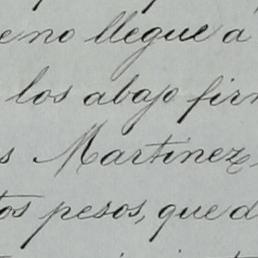 e no llegue a
los abajo fir
s Martinez,
tos pesos, que d